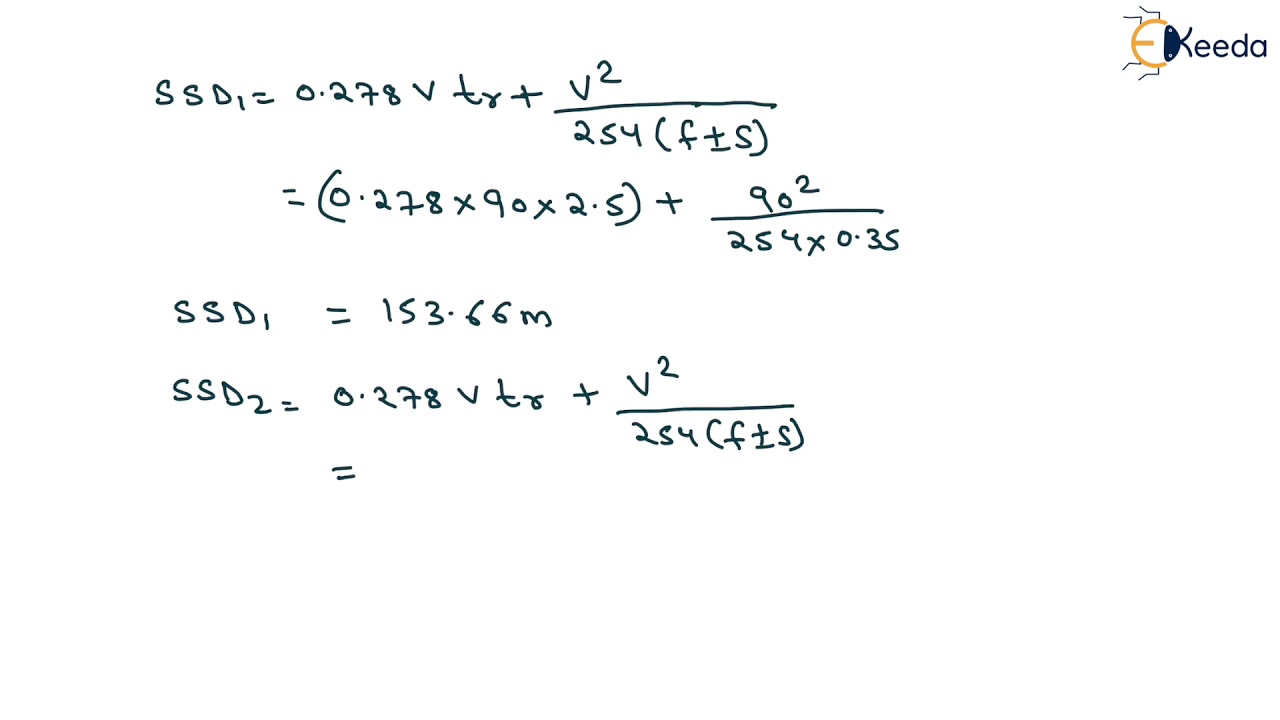 EKeeda
SSD₁ = 0.278 V tr + V² / 254 (f ± S)
= (0.278 × 90 × 2.5) + 90² / 254 × 0.35
SSD₁ = 153.66 m
SSD₂ = 0.278 V tr + V² / 254 (f ± S)
=